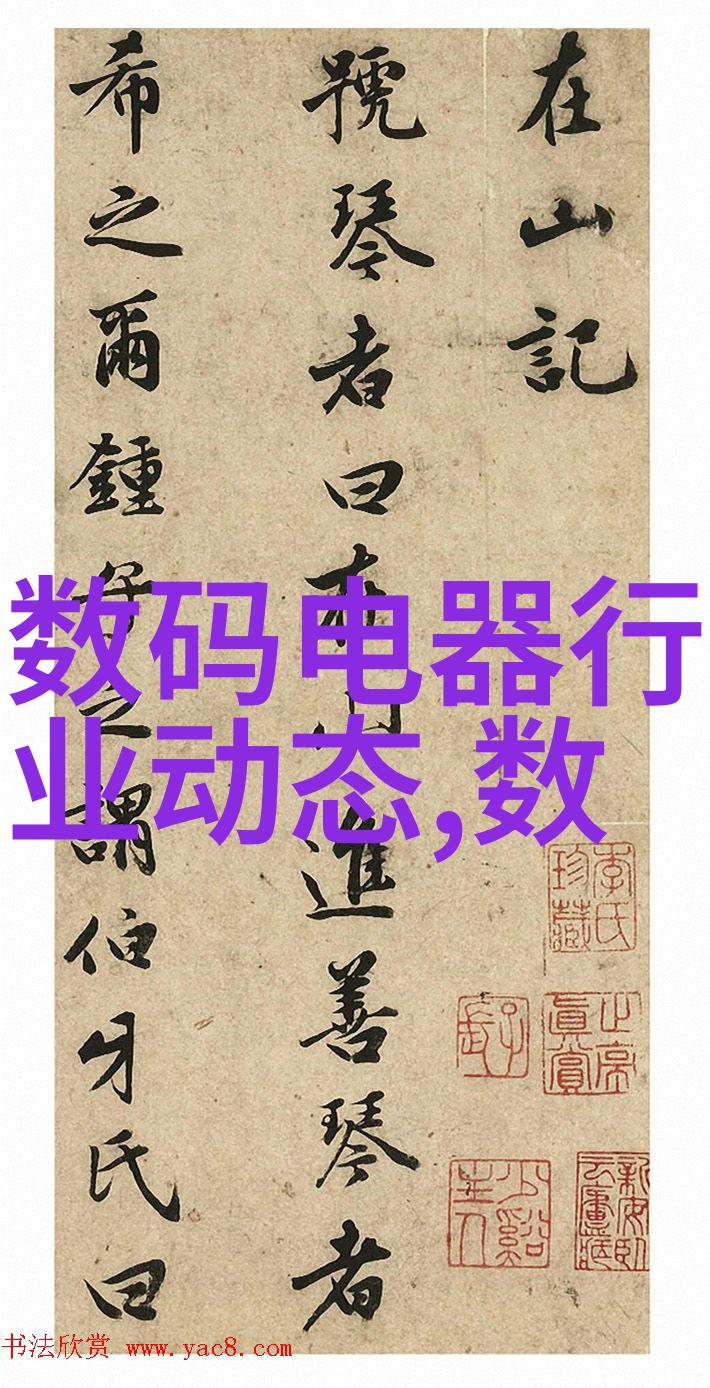 在山記
號琴者曰進善琴者
希之爾鍾之謂伯牙氏曰
数码电器行
业动态,数
少谿主人
书法欣赏 www.yac8.com